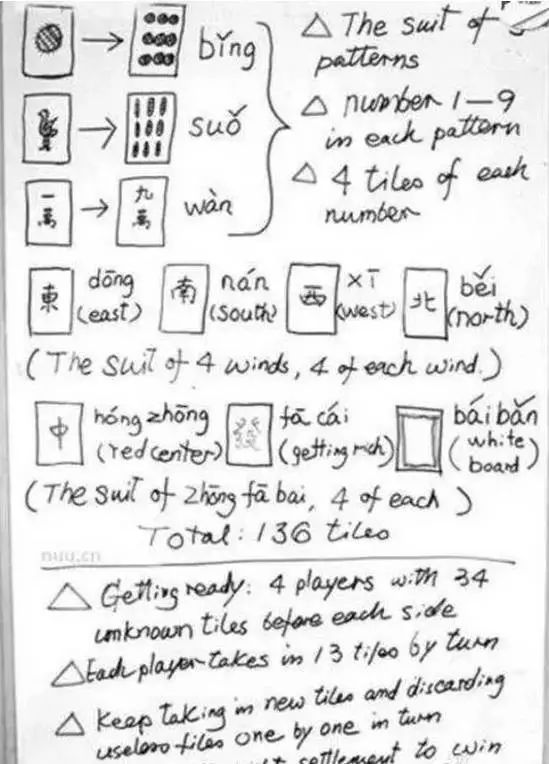 bǐng
△ The suit of 3
patterns
suǒ
△ number 1—9
in each pattern
一萬 → 九萬 wàn
△ 4 tiles of each
number
東 dōng (east) 南 nán (south) 西 xī (west) 北 běi (north)
(The suit of 4 winds, 4 of each wind.)
中 hóng zhōng (red center) 發 fā cái (getting rich) bái bǎn (white board)
(The suit of zhōng fā bai, 4 of each)
Total: 136 tiles
nuu.cn
△ Getting ready: 4 players with 34
unknown tiles before each side
△ Each player takes in 13 tiles by turn
△ Keep taking in new tiles and discarding
useless tiles one by one in turn
settlement to win